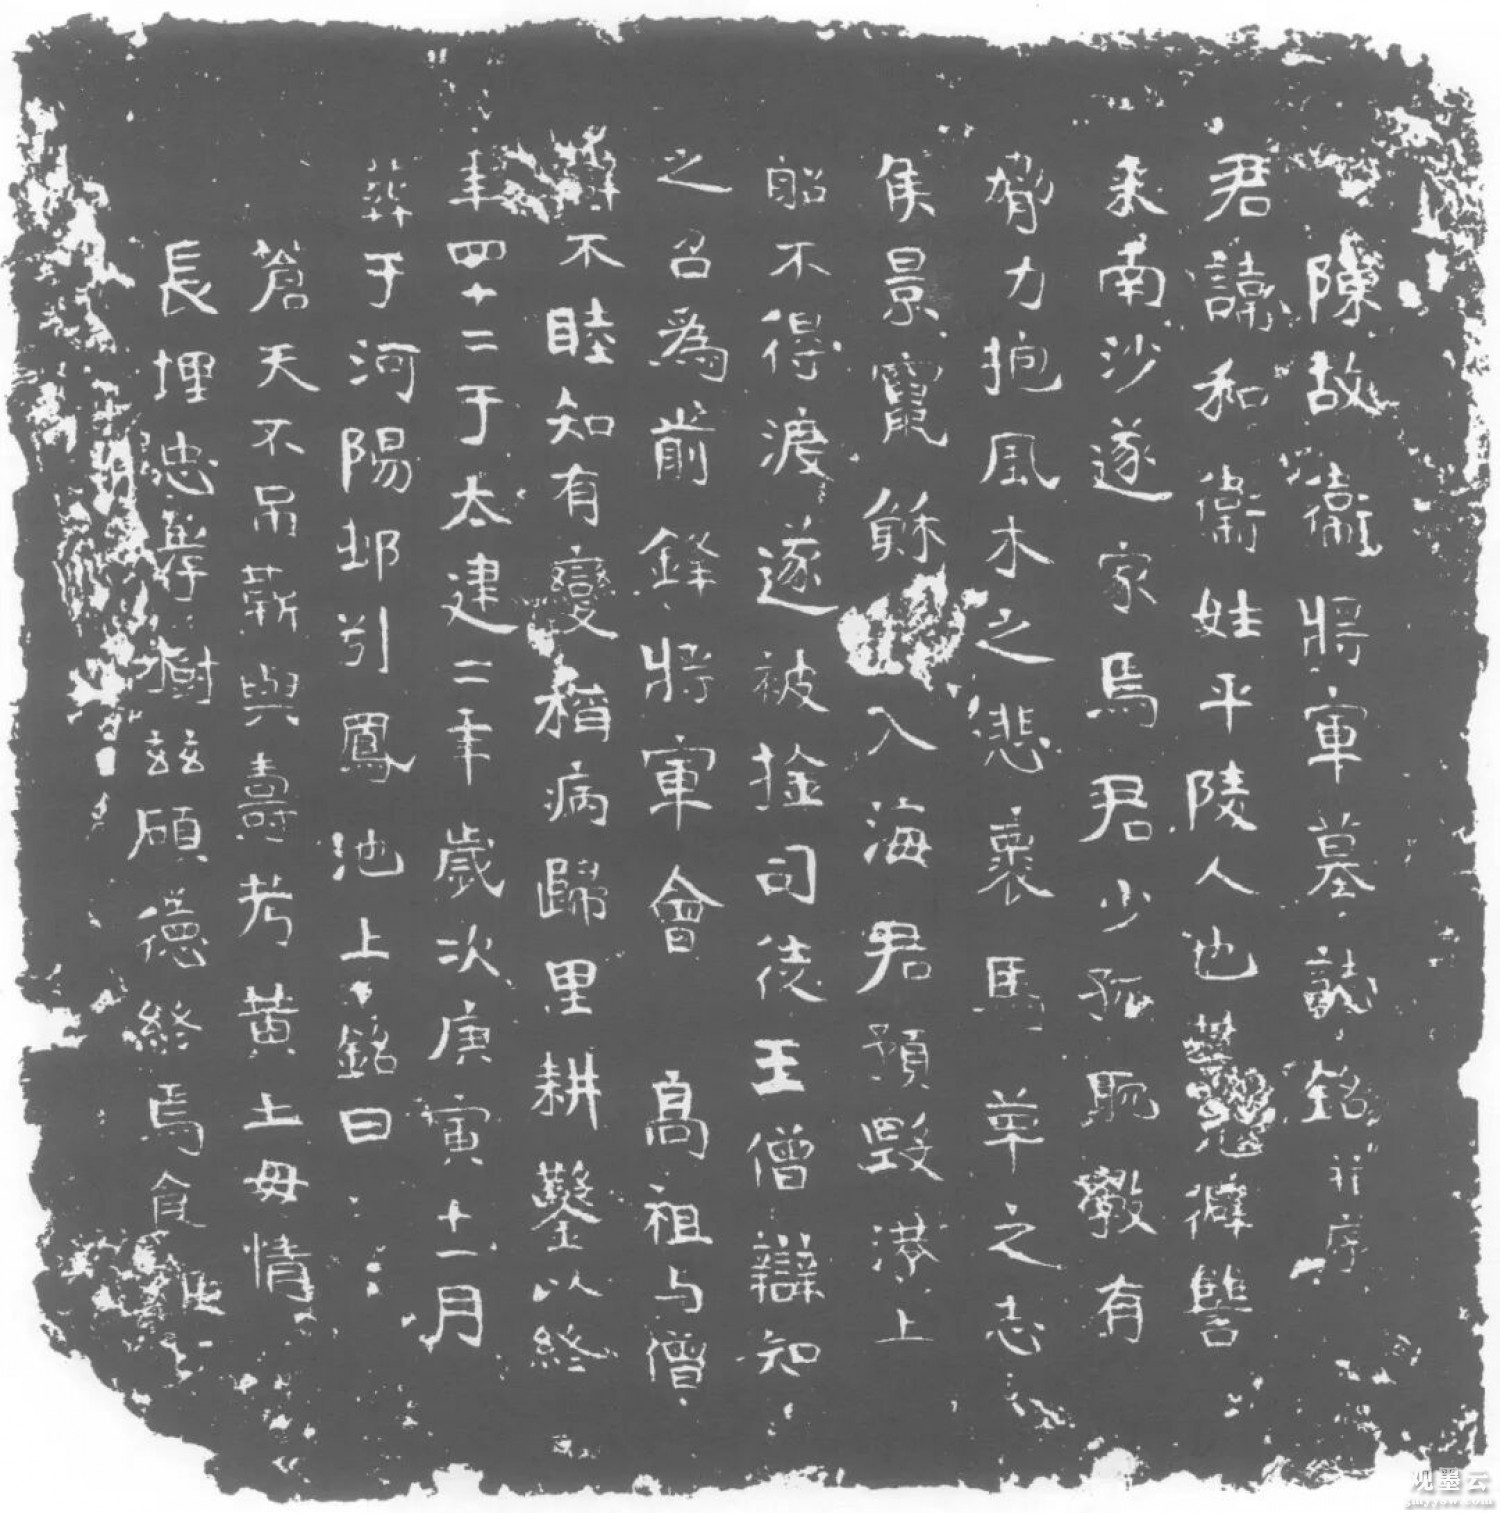 陳故衞將軍墓誌銘并序
君諱和衞姓平陵人也塟冠僻讐
来南沙遂家焉君少孤聪敏有
膂力抱風木之悲裹馬革之志
侯景竄入海君預毀港上
船不得渡遂被擒司徒王僧辯知
之召為前鋒將軍會高祖与僧
辯不睦知有變稱病歸里耕鑿以終
年四十二于太建二年歲次庚寅十一月
葬于河陽邨引鳳池上銘曰
蒼天不吊蘄與壽考黃土毋情
長埋忠孝樹兹碩德終焉食
观墨云